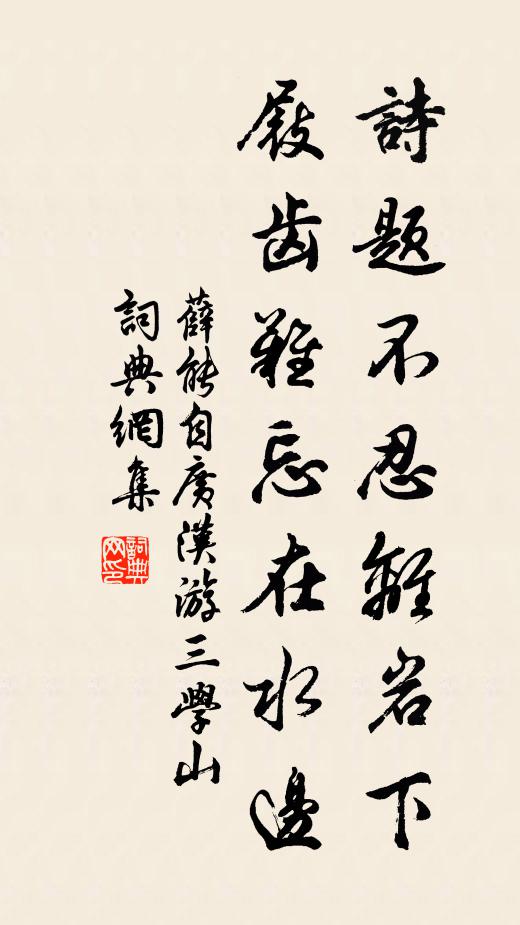 詩题不忍離岩下
屐齒難忘在水邊
薛能自廣漢游三學山
詞典網集
詞典網印